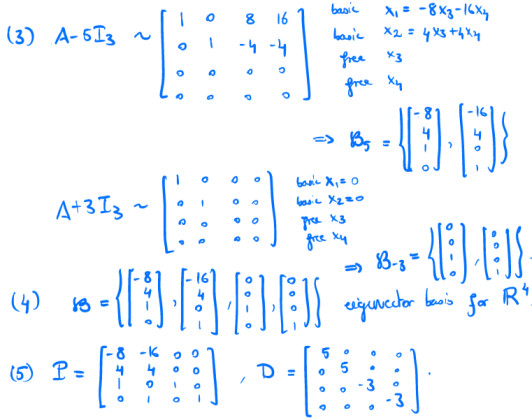 (3) A-5I₃ ~ [1 0 8 16; 0 1 -4 -4; 0 0 0 0; 0 0 0 0]
basic x₁ = -8x₃-16x₄
basic x₂ = 4x₃+4x₄
free x₃
free x₄
⇒ B₅ = {[-8; 4; 1; 0], [-16; 4; 0; 1]}
A+3I₃ ~ [1 0 0 0; 0 1 0 0; 0 0 0 0; 0 0 0 0]
basic x₁=0
basic x₂=0
free x₃
free x₄
⇒ B₋₃ = {[0; 0; 1; 0], [0; 0; 0; 1]}.
(4) B = {[-8; 4; 1; 0], [-16; 4; 0; 1], [0; 0; 1; 0], [0; 0; 0; 1]} eigenvector basis for ℝ⁴
(5) P = [-8 -16 0 0; 4 4 0 0; 1 0 1 0; 0 1 0 1], D = [5 0 0 0; 0 5 0 0; 0 0 -3 0; 0 0 0 -3].